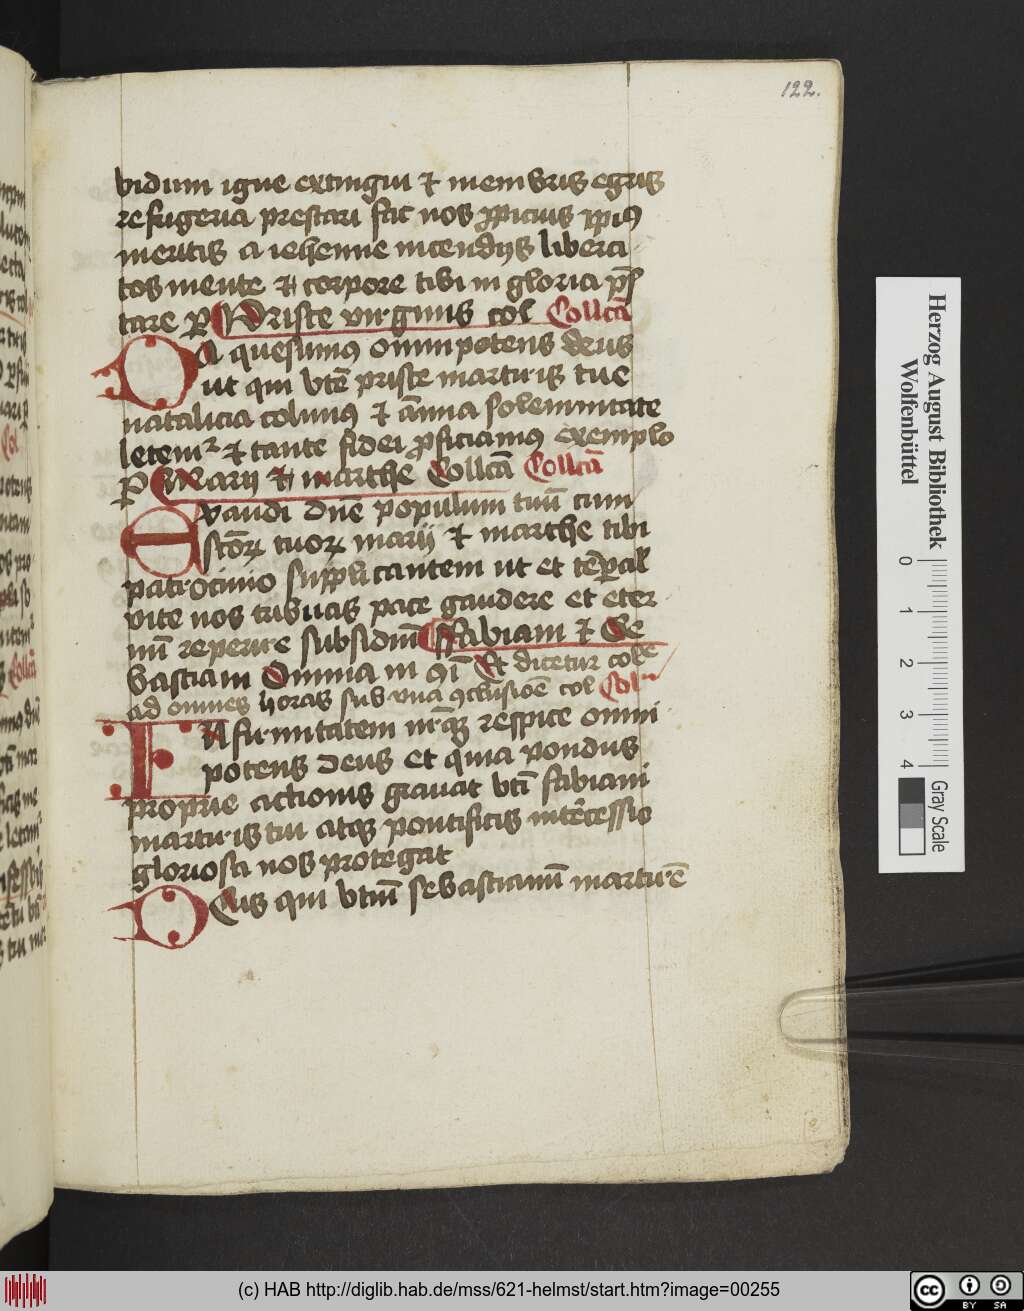 122.
vidum igne extingui et membris egris
refugeria prestari fac nos propicius ipius
meritis a iehenne incendijs libera
tos mente et corpore tibi in gloria pre
tare p Prisce virginis col Collcā
Da quesumus omnipotens deus
ut qui btē prisce martiris tue
natalicia colimus et āniia solemnitate
letemr et tante fidei proficiamus exemplo
p Marij et marthe Collcā Collcā
Exaudi dnē populum tuū cum
scōrꝝ tuorꝝ marij et marthe tibi
patrocinio supplicantem ut et tēpal
vite nos tribuas pace gaudere et eter
nū reperire subsidiū Fabiani et Se
bastiani Omnia in qī Et dicetur cole
ad omnes horas sub una ꝯclusiōe col Col
Infirmitatem nrāꝫ respice omni
potens deus et quia pondus
proprie actionis gravat btī fabiani
martiris tui atqꝫ pontificis intercessio
gloriosa nos protegat
Deus qui btm̄ sebastianū martirē
Herzog August Bibliothek
Wolfenbüttel
0 1 2 3 4
Gray Scale
(c) HAB http://diglib.hab.de/mss/621-helmst/start.htm?image=00255
cc BY SA